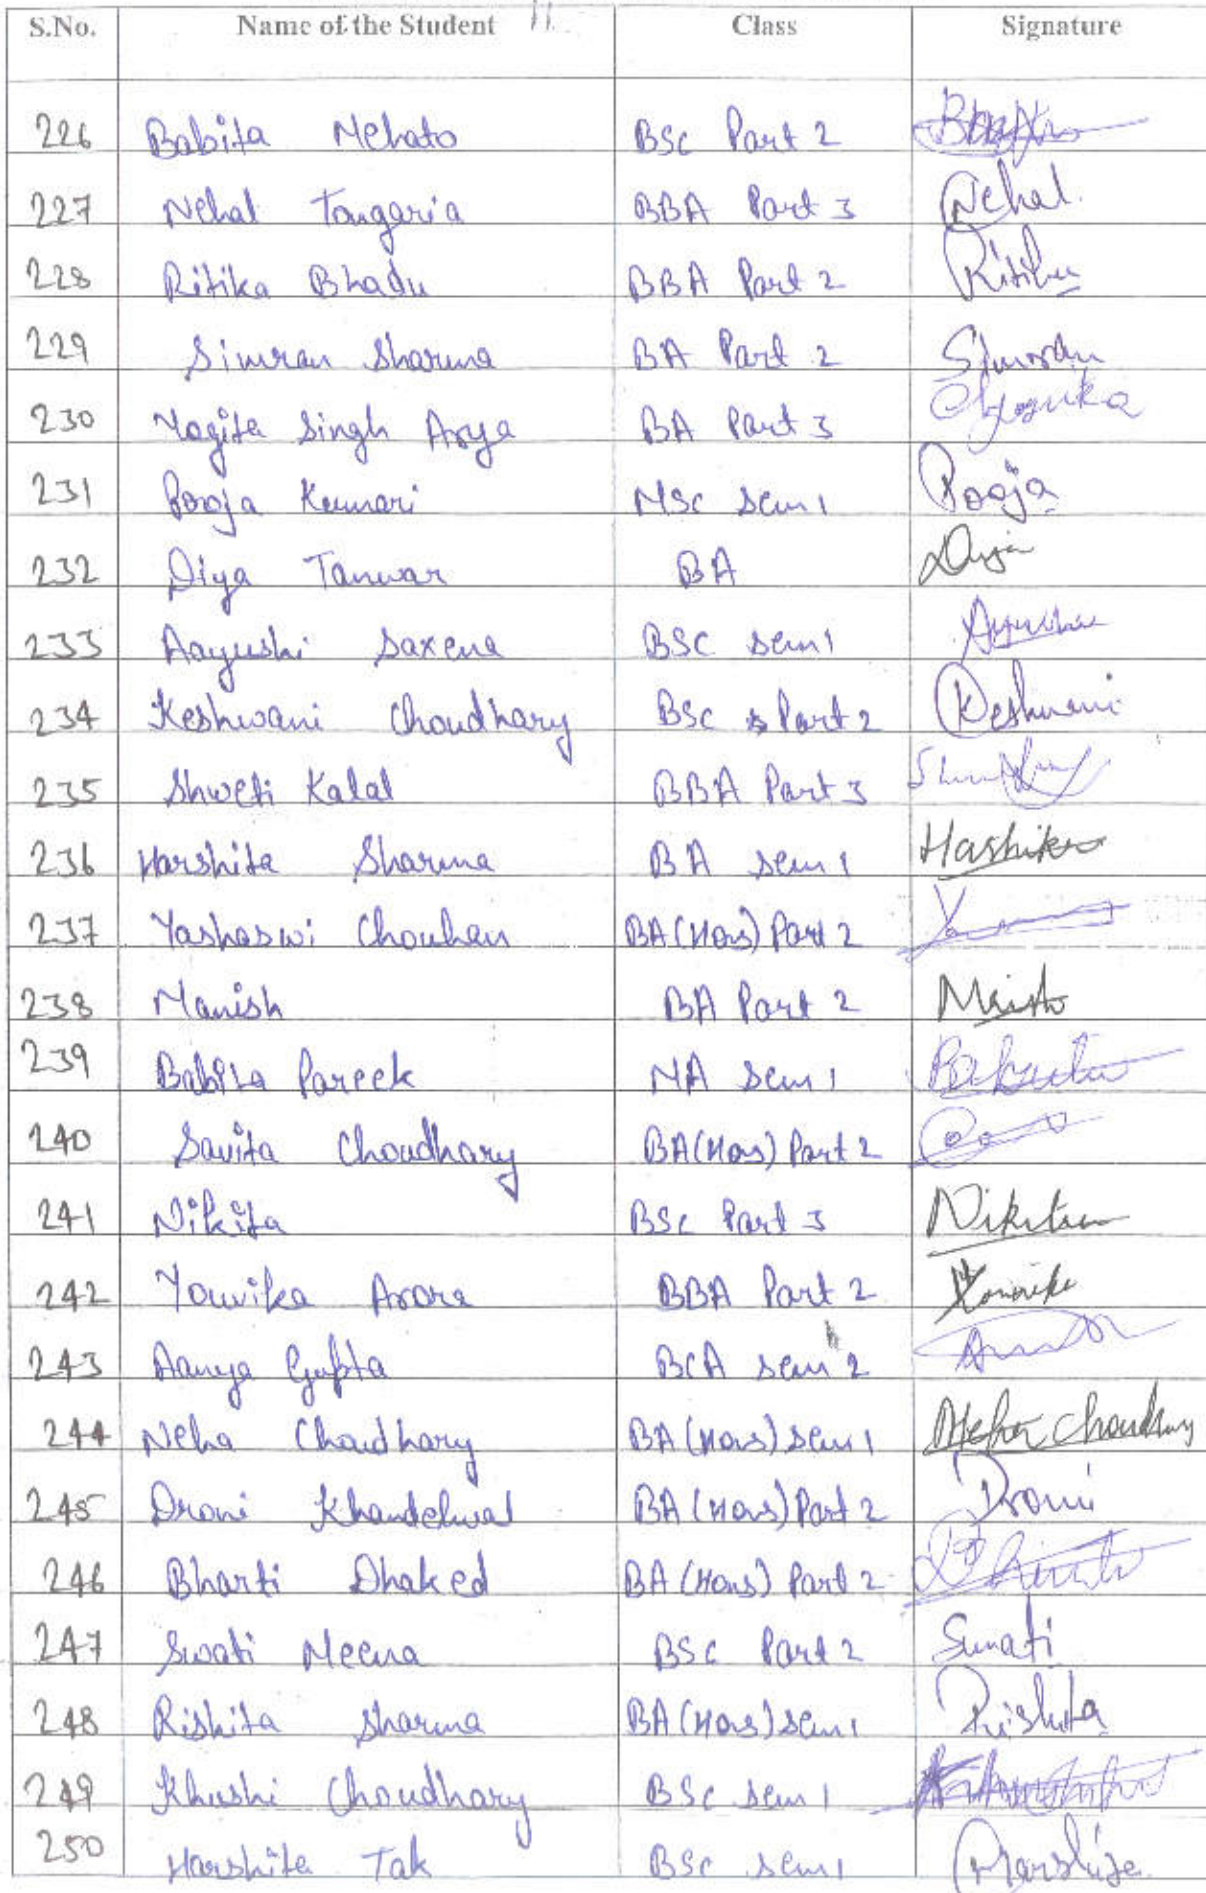 S.No. Name of the Student Class Signature
226 Babita Mehato BSc Part 2
227 Nehal Tongaria BBA Part 3 Nehal
228 Ritika Bhadu BBA Part 2 Ritika
229 Simran Sharma BA Part 2 Simran
230 Yogita Singh Arya BA Part 3
231 Pooja Kumari MSc Sem 1 Pooja
232 Diya Tanwar BA Diya
233 Aayushi Saxena BSC Sem 1
234 Keshwani Choudhary BSc Part 2 Keshwani
235 Shweti Kalal BBA Part 3
236 Harshita Sharma BA Sem 1
237 Yashaswi Chouhan BA (Hons) Part 2
238 Manish BA Part 2
239 Babita Pareek MA Sem 1
240 Savita Choudhary BA (Hons) Part 2
241 Nikita BSc Part 3 Nikita
242 Youvika Arora BBA Part 2
243 Aanya Gupta BCA Sem 2
244 Neha Chaudhary BA (Hons) Sem 1 Neha Choudhary
245 Droni Khandelwal BA (Hons) Part 2 Droni
246 Bharti Dhaked BA (Hons) Part 2
247 Swati Meena BSC Part 2 Swati
248 Rishita Sharma BA (Hons) Sem 1 Rishita
249 Khushi Choudhary BSc Sem 1
250 Harshita Tak BSc Sem 1 Harshita